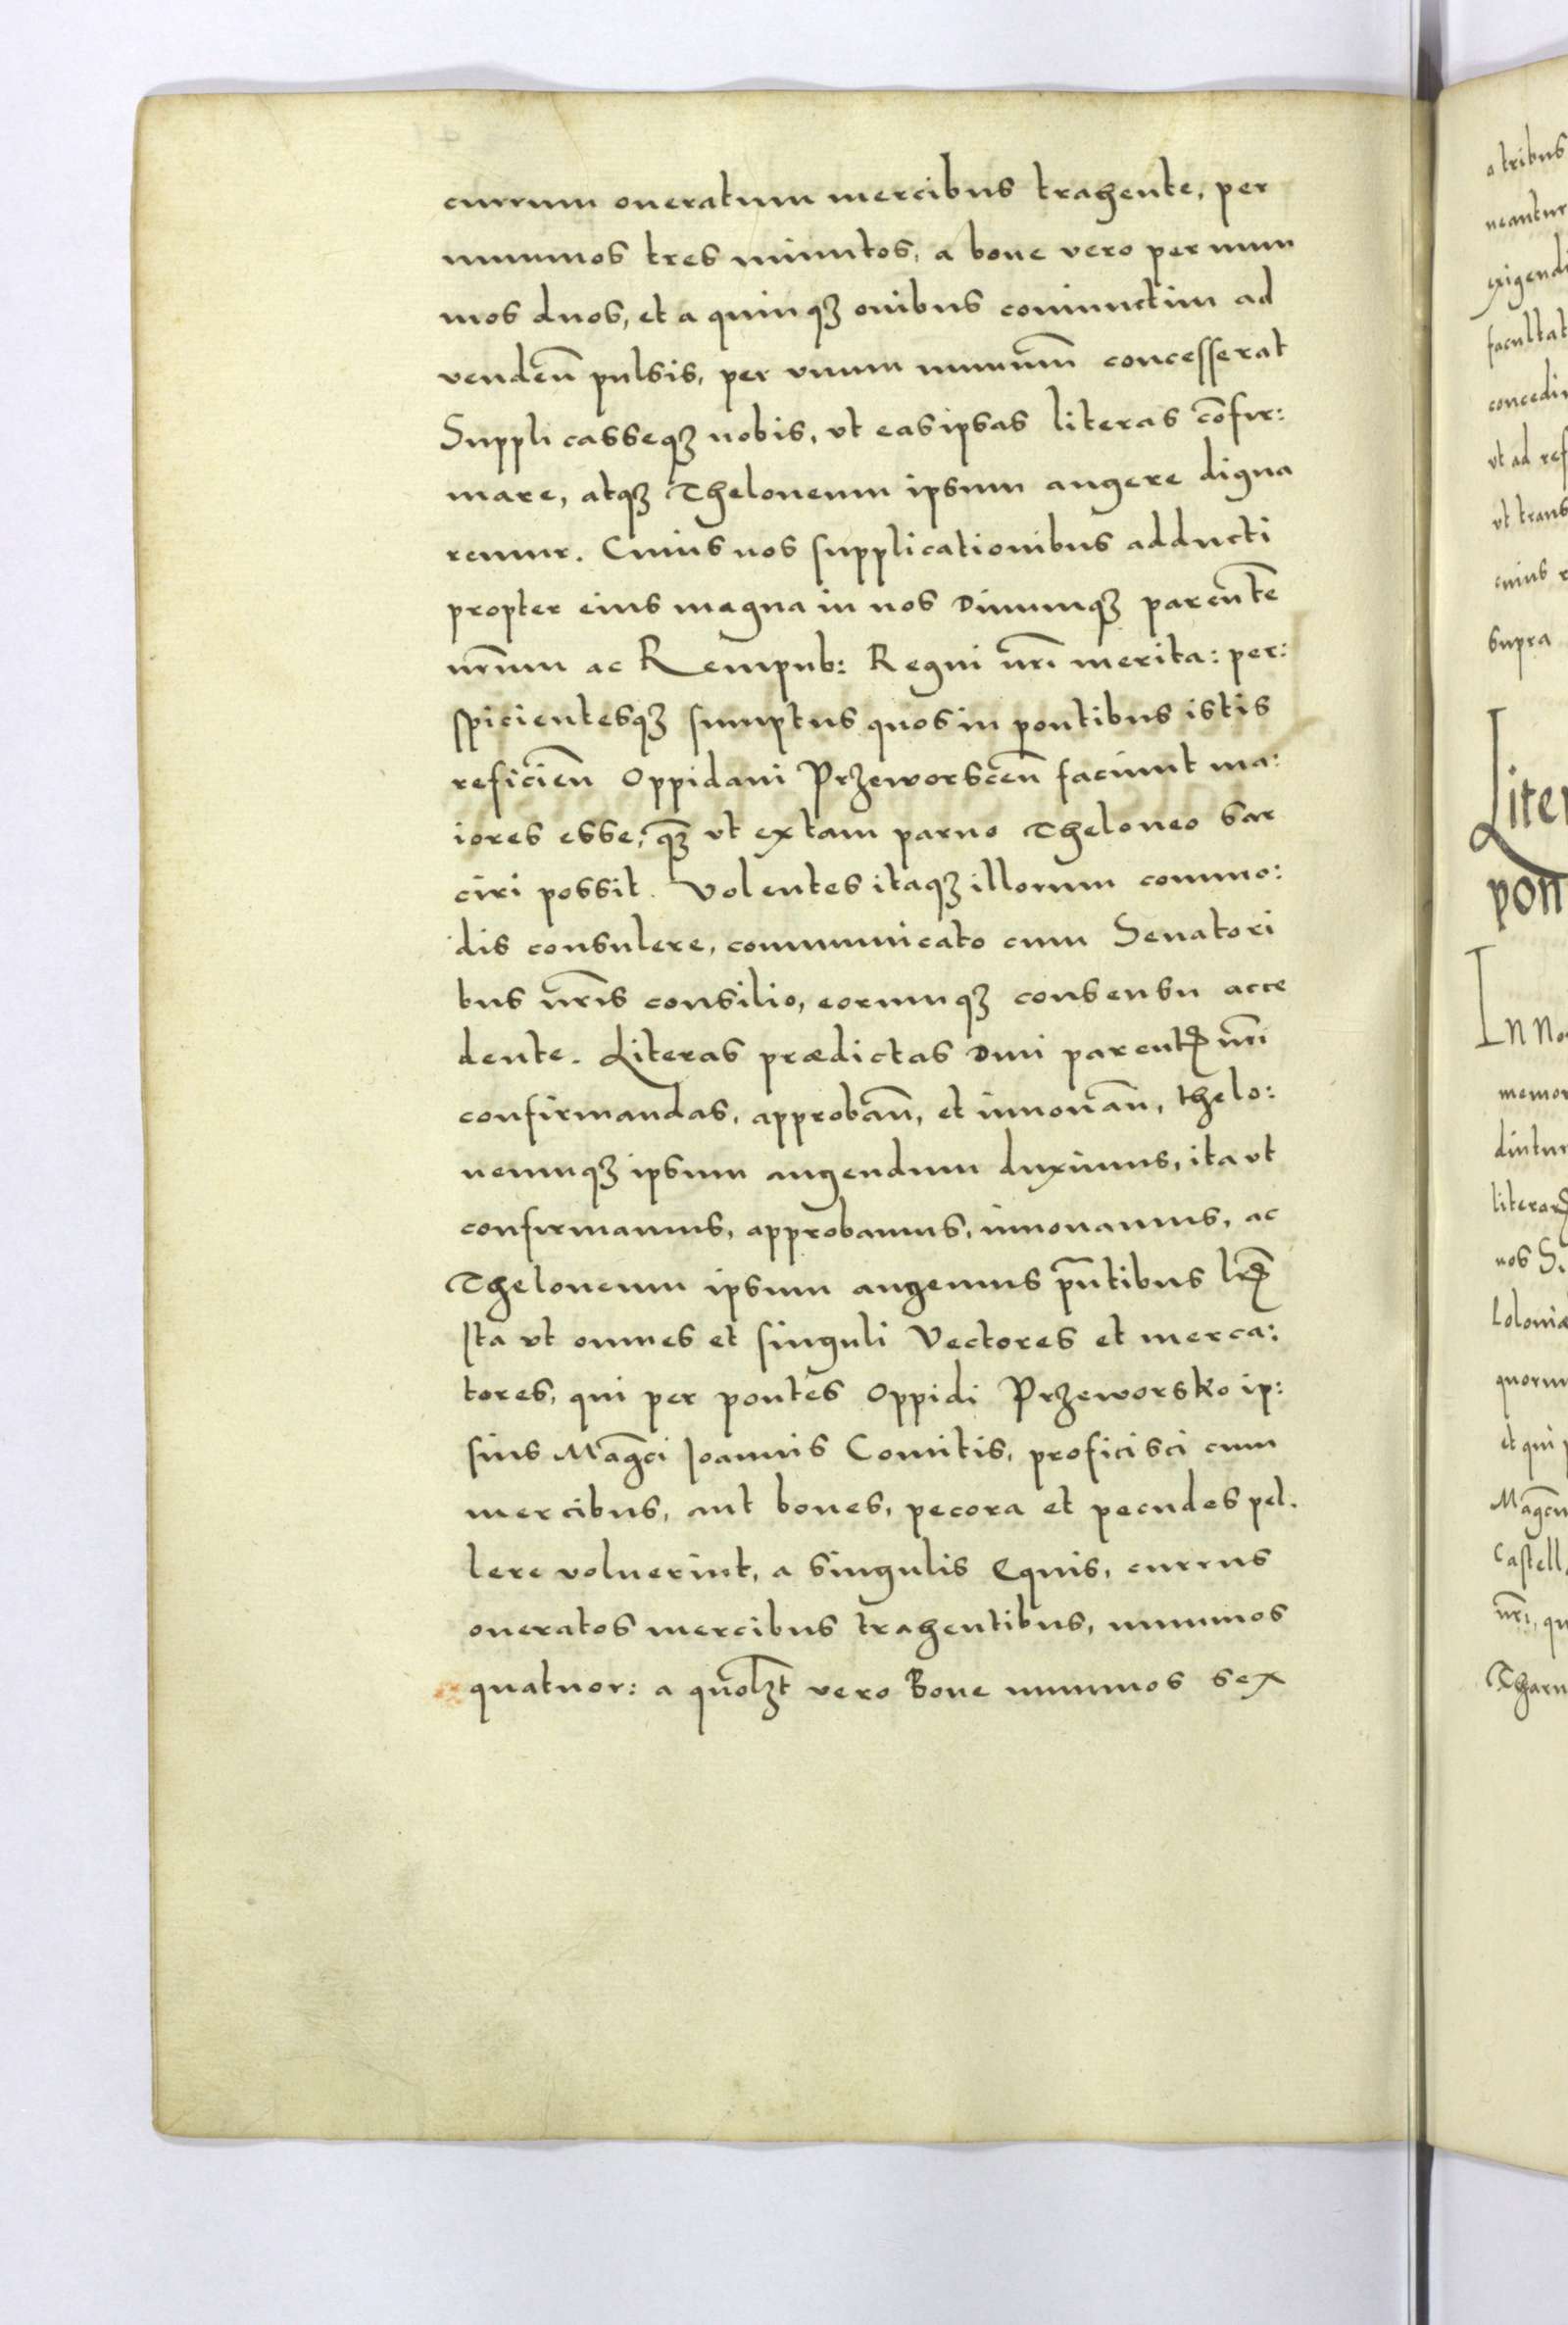 currum oneratum mercibus trahente, per
nummos tres minutos, a boue vero per num
mos duos, et a quinqꝫ ouibus coniunctim ad
vendeñ pulsis, per vnum nummũ concesserat
Supplicasseqꝫ nobis, vt eas ipsas literas cõfir:
mare, atqꝫ Theloneum ipsum augere digna
remur. Cuius nos supplicationibus adducti
propter eius magna in nos Diuumqꝫ parentẽ
nr̃um ac Rempub: Regni nr̃i merita: per:
spicientesqꝫ sumptus quos in pontibus istis
reficieñ Oppidani Przeworsceñ faciunt ma:
iores esse, q̃ꝫ vt ex tam paruo Theloneo sar
ciri possit. Volentes itaqꝫ illorum commo:
dis consulere, communicato cum Senatori
bus nr̃is consilio, eorumqꝫ consensu acce
dente. Literas prædictas Diui parentꝭ nr̃i
confirmandas, approbañ, et innouañ, thelo:
neumqꝫ ipsum augendum duximus, ita vt
confirmamus, approbamus, innouamus, ac
Theloneum ipsum augemus pñtibus lr̃ꝭ
Ita vt omnes et singuli Vectores et merca:
tores, qui per pontes Oppidi Przeworsko ip:
sius Mag̃ci Joannis Comitis, proficisci cum
mercibus, aut boues, pecora et pecudes pel.
lere voluerint, a singulis Equis, currus
oneratos mercibus trahentibus, nummos
quatuor: a quolꝫt vero Boue nummos sex
a tribus
neantur
exigendi
facultat
concedi
vt ad ref
vt trans
cuius r
supra
Liter
pon
In No
memor
diutur
literarꝫ
nos S.
Loloniæ
quorum
et qui p
Mag̃cu
Castell
nr̃i, qu
Tharn